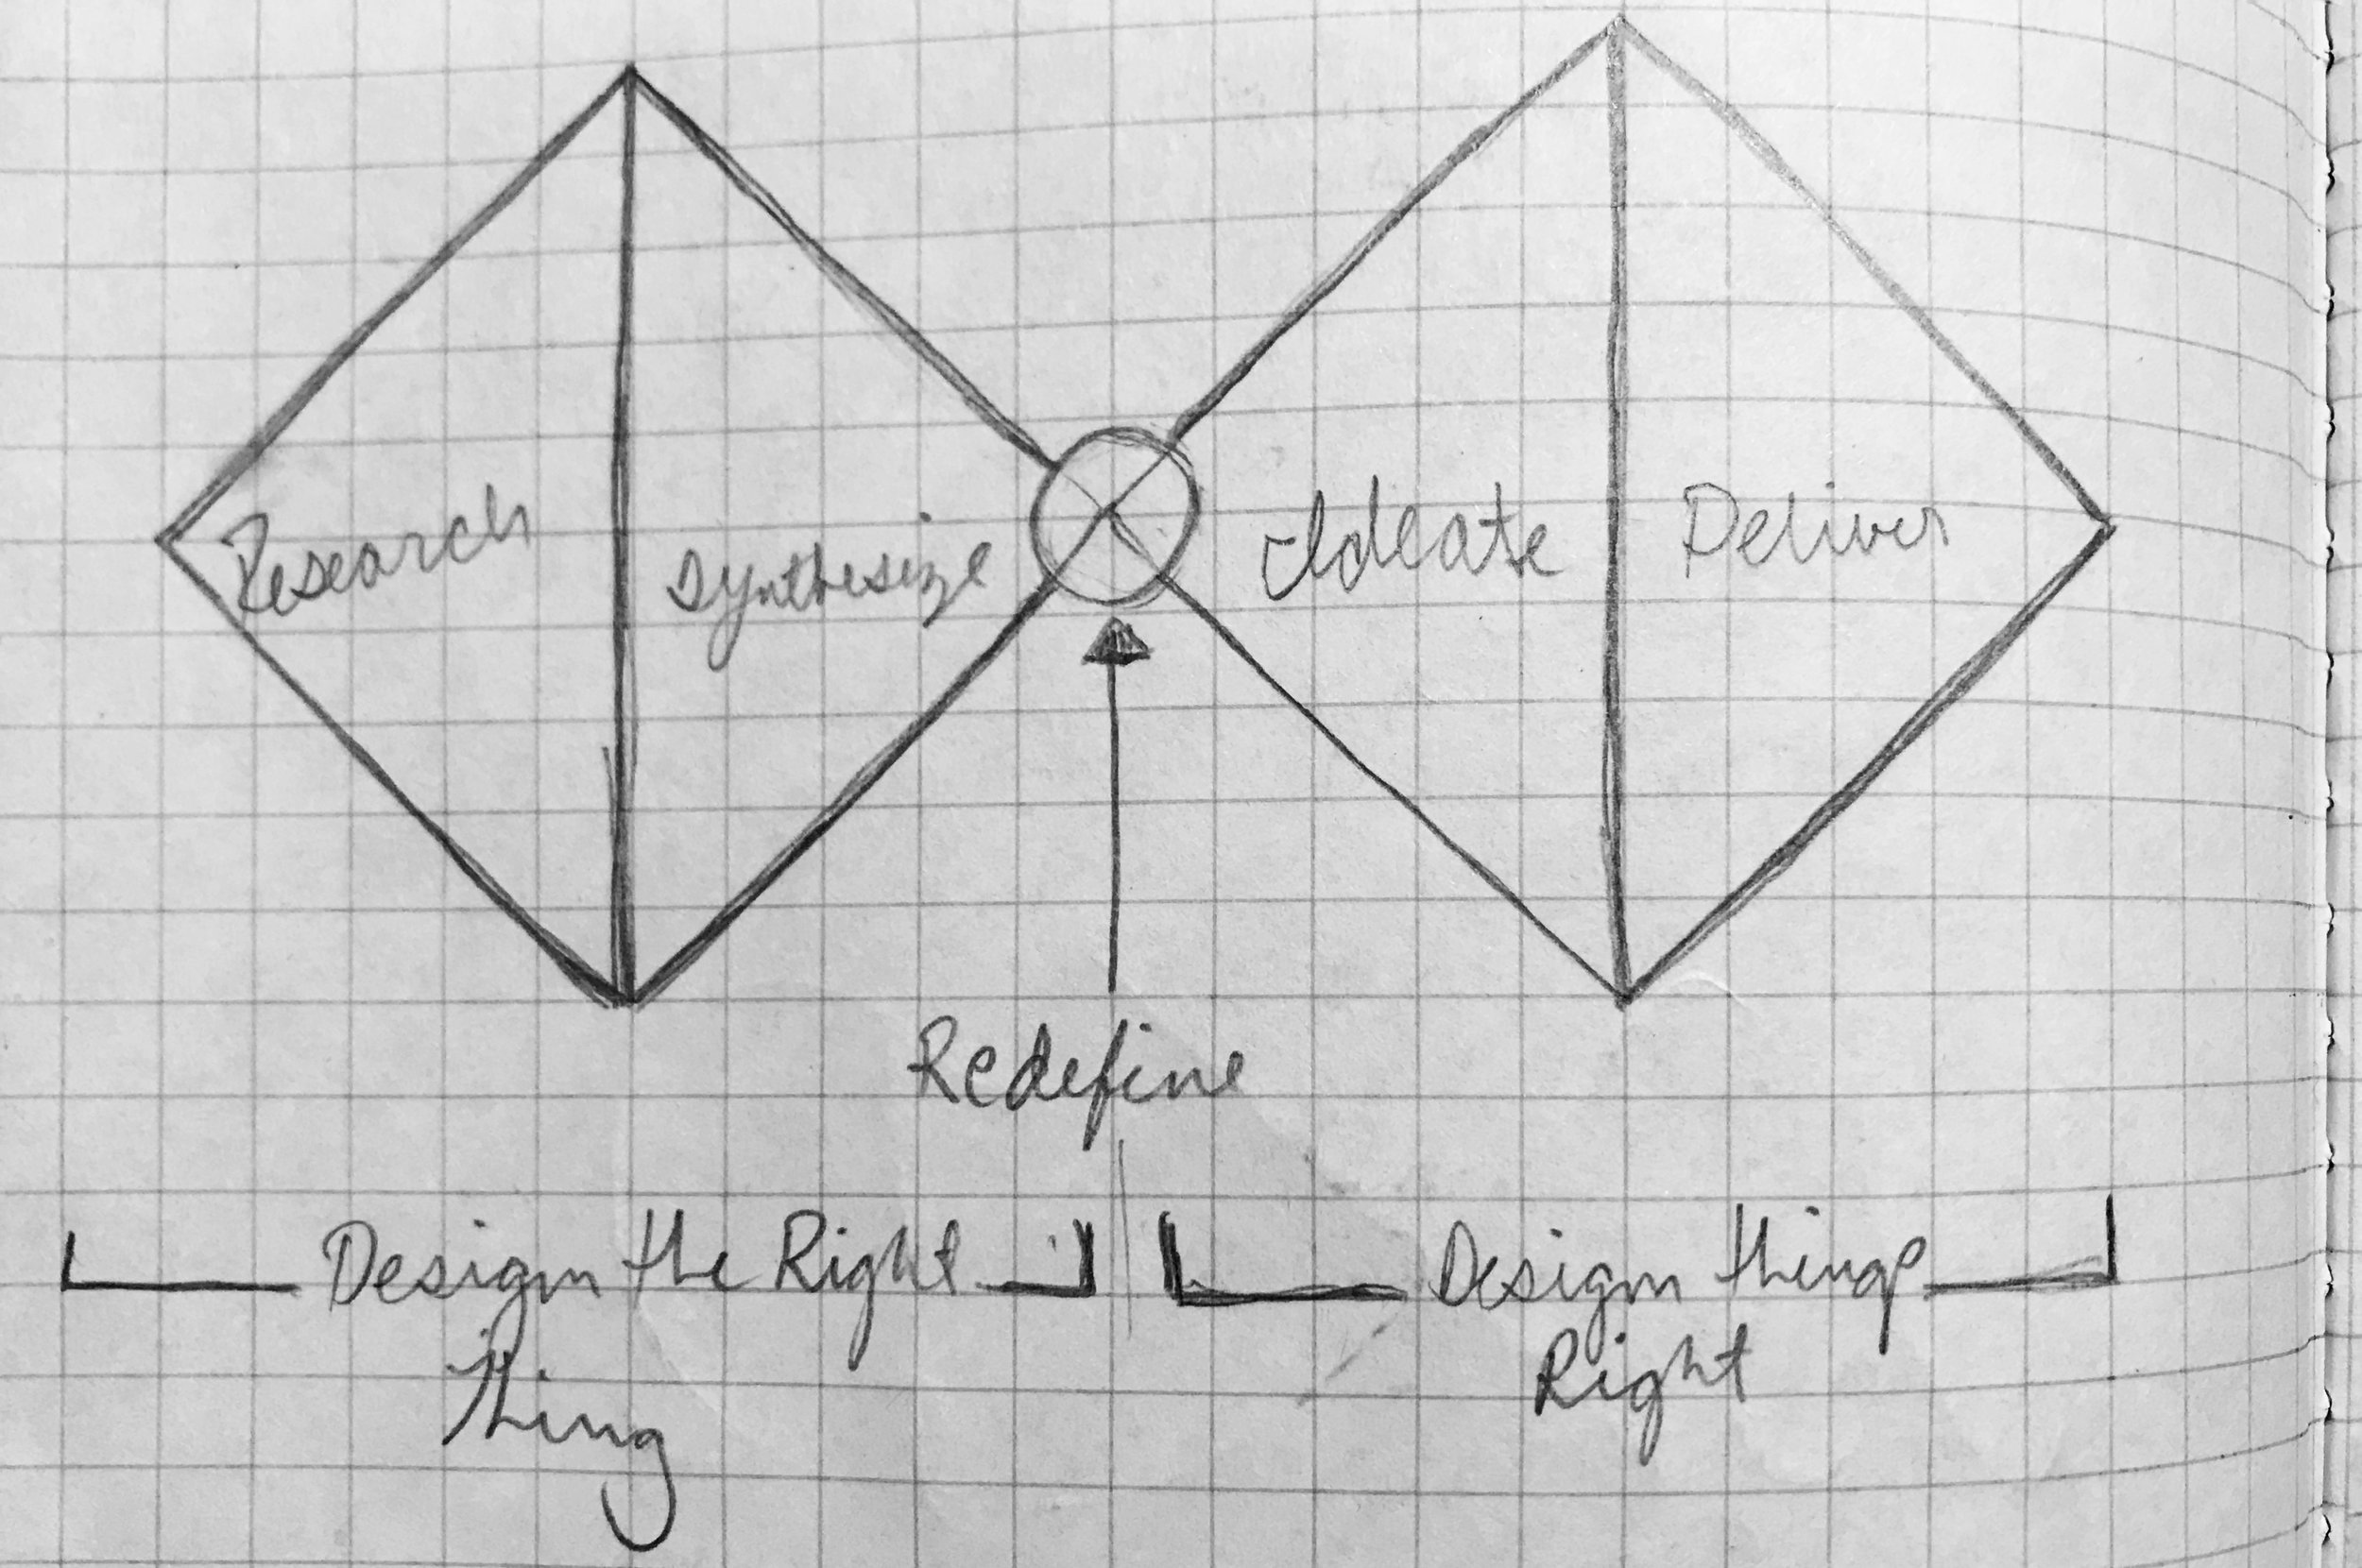 Research
Synthesize
Ideate
Deliver
Redefine
Design the Right
Thing
Design things
Right